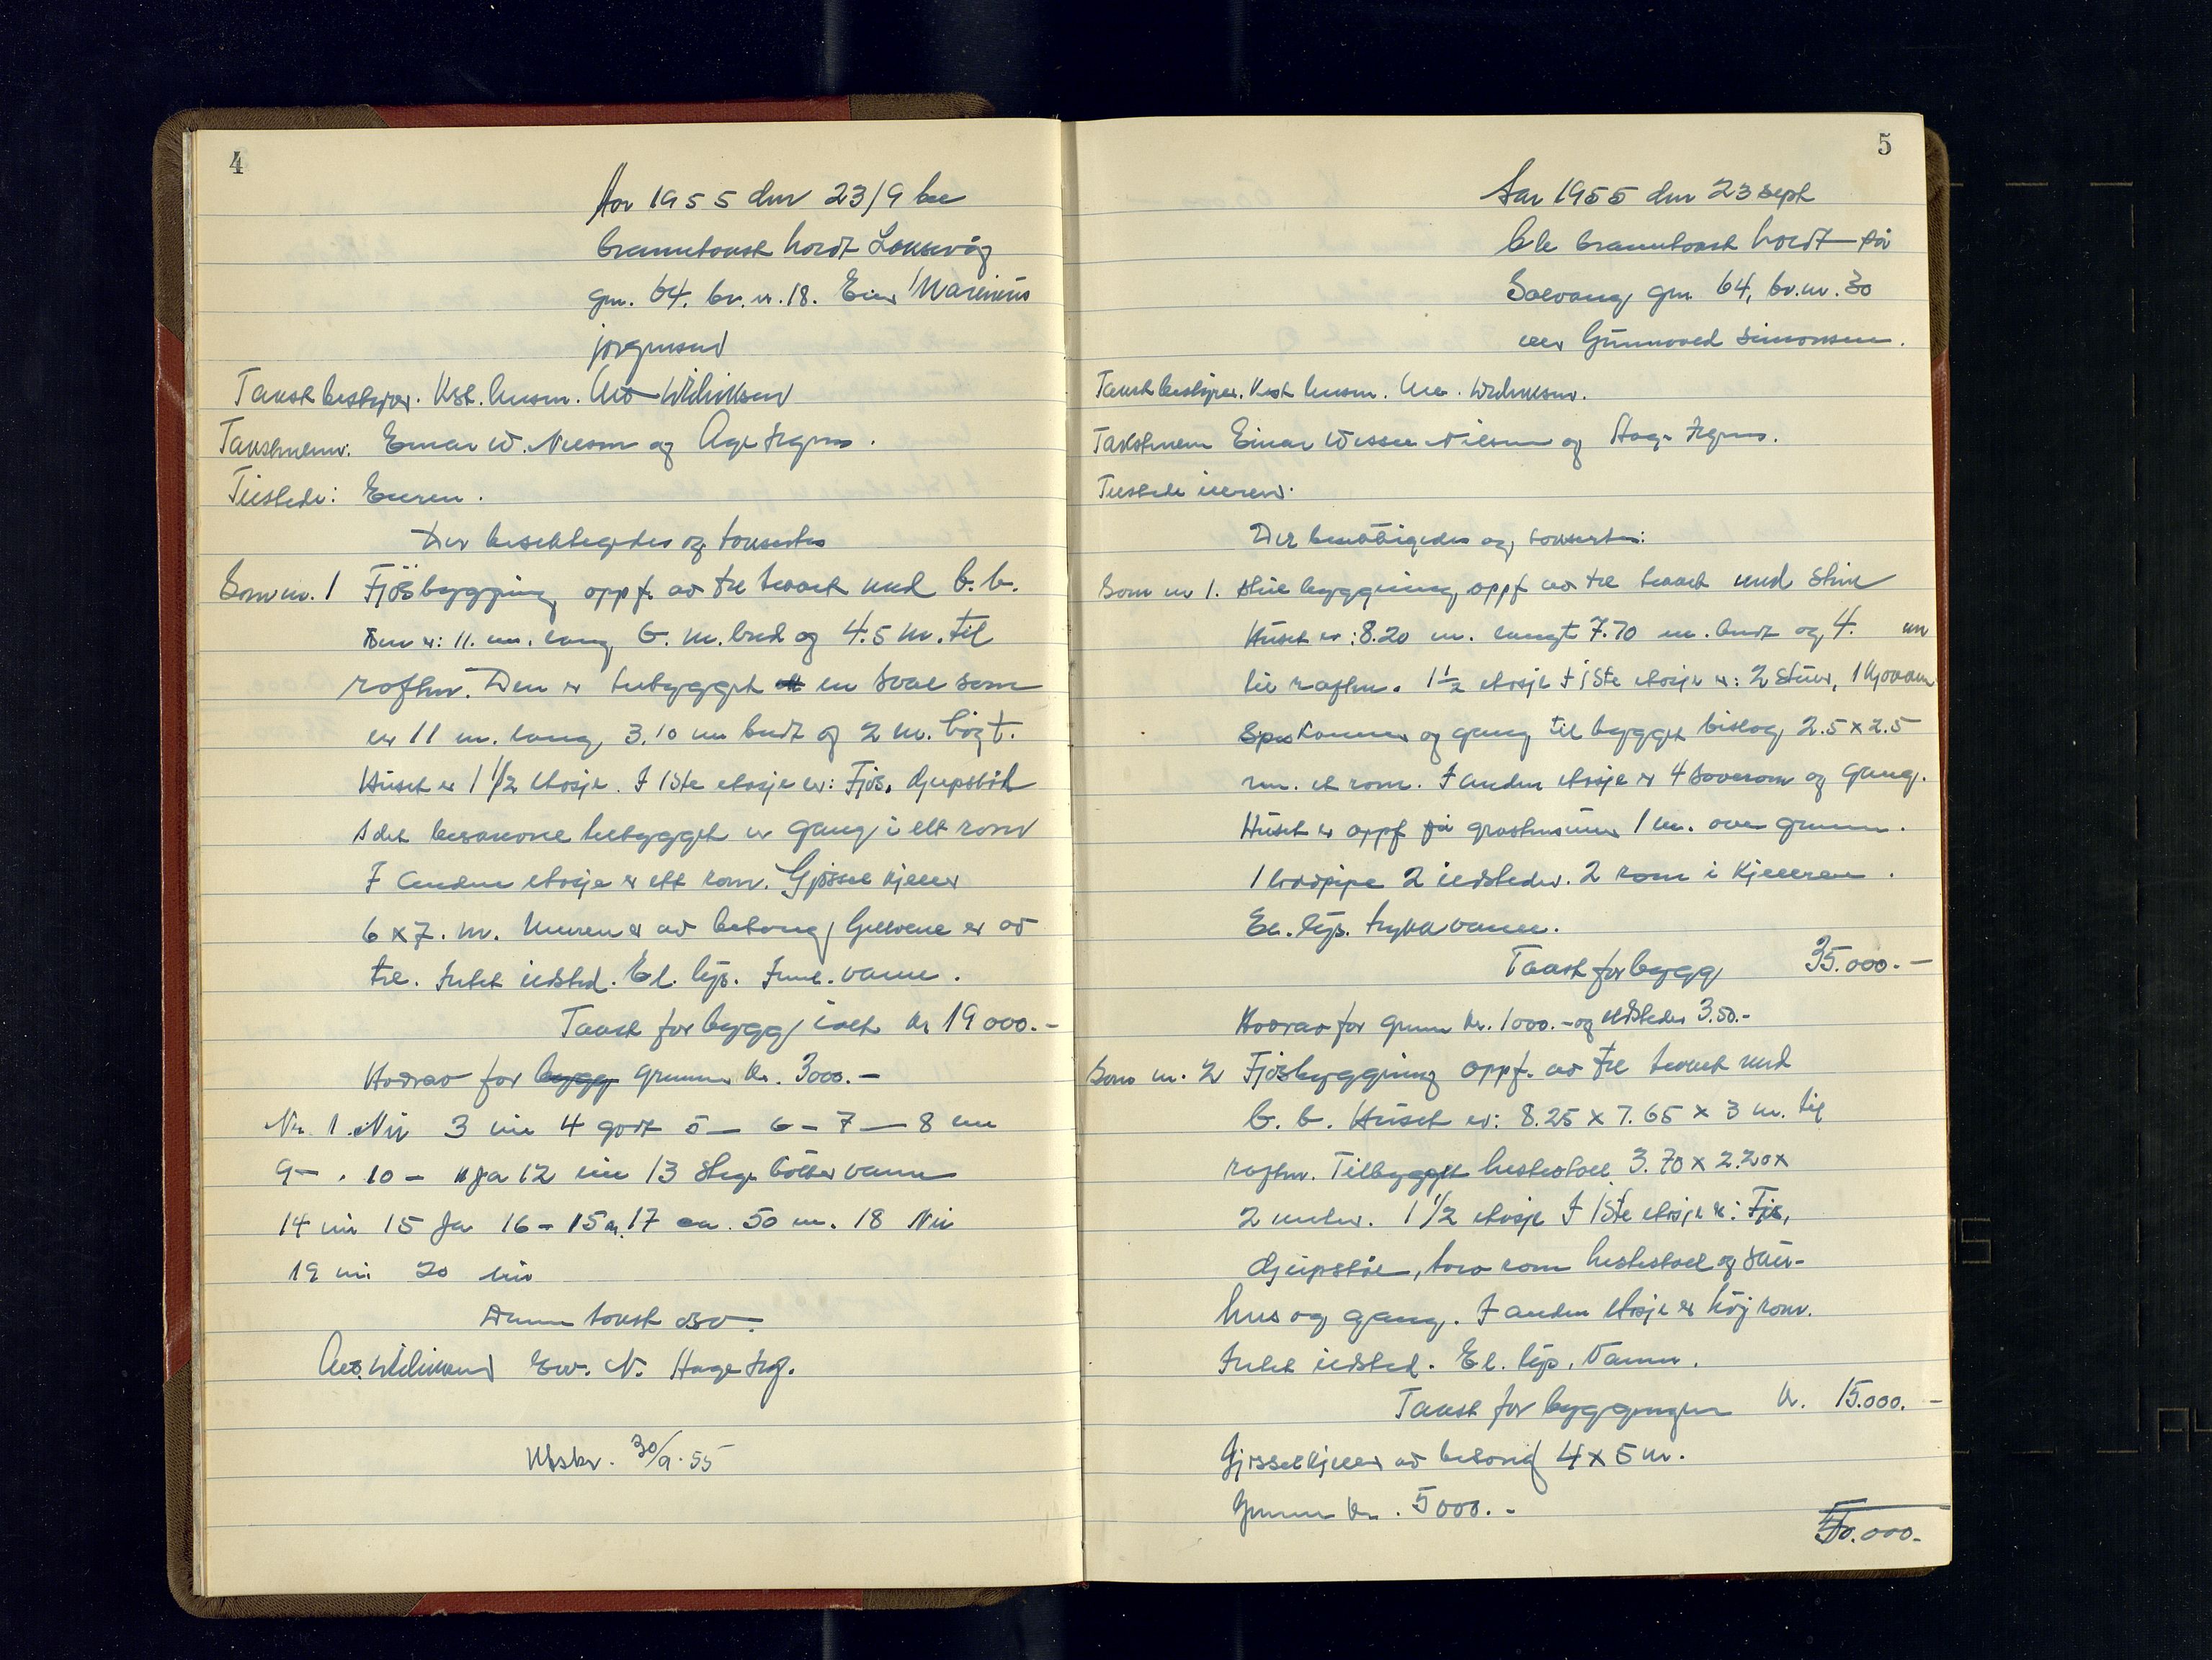 4
Aar 1955 den 23/9 ble
branntakst holdt Laksevåg
gnr. 64. br. nr. 18. Eier Marinius
Jørgensen
Takst bestyrer. Kst. lensm. Alb Wilhelmsen
Takstmenn: Einar W. Nilsen og Age
Tilstede: Eieren.
Der besiktigedes og taksertes
Som nr. 1 Fjösbygging oppf. av tre tekket med b. b.
Den er: 11. m. lang 6. m. bred og 4.5 m. til
rafhn. Den er tilbygget en sval som
er 11 m. lang 3.10 m bredt og 2 m. högt.
Huset er 1 1/2 etasje. I 1ste etasje er: Fjös. djupstöl
I det tilbygget er gang i ett rom
I anden etasje er ett rom. Gjössel kjeller
6 x 7. m. Muren er av betong, Gulvene er av
tre. Intet ildsted. El. lys. Innl. vann.
Takst for bygg i alt kr 19 000.-
Hvorav for bygg grunnm kr. 3000.-
Nr. 1. Nei 3 nei 4 godt 5 - 6 - 7 - 8 en
9 - . 10 - 11 ja 12 nei 13 Stige bötter vann
14 nei 15 Ja 16 - 15 m. 17 ca. 50 m. 18 Nei
19 nei 20 nei
Denne takst osv.
Alb. Wilhelmsen Ew. N. Hage
Utskr. 30/9.55
5
Aar 1955 den 23 sept
ble branntakst holdt på
Solvang gnr. 64, br. nr. 30
eier Gunnvald Simonsen.
Takst bestyrer. Kst lensm. Alb. Wilhelmsen.
Takstmenn Einar Wessel Nilsen og Hage
Tilstede eieren.
Der besiktigedes og taksertes:
Som nr 1. Stue bygging, oppf av tre tekket med Stein
Huset er: 8.20 m. langt 7.70 m. bredt og 4. m
til rafhn. 1 1/2 etasje I 1ste etasje er: 2 Stuer, 1 kjökken
Spiskammer og gang til bygget bislag 2.5 x 2.5
m. et rom. I anden etasje er 4 Soverom og Gang.
Huset er oppf på grastensmur 1 m. over grunnen.
1 brandpipe 2 ildsteder. 2 rom i Kjelleren.
El. lys. trykk vann.
Takst for bygg 35.000.-
Hvorav for grunn kr. 1000.- og ildsteder 3.50.-
Som nr. 2 Fjösbygging oppf. av tre tekket med
b. b. Huset er: 8.25 x 7.65 x 3 m. til
rafhn. Tilbygget hestestall 3.70 x 2.20 x
2 meter. 1 1/2 etasje I 1ste etasje er: Fjös,
djupstöl, som hestestall og sau-
hus og gang. I anden etasje er höj rom.
Intet ildsted. El. lys. Vann.
Takst for byggningen kr. 15.000.-
Gjösselkjeller av betong 4 x 5 m.
Grunnm kr. 5000.-
50.000.-